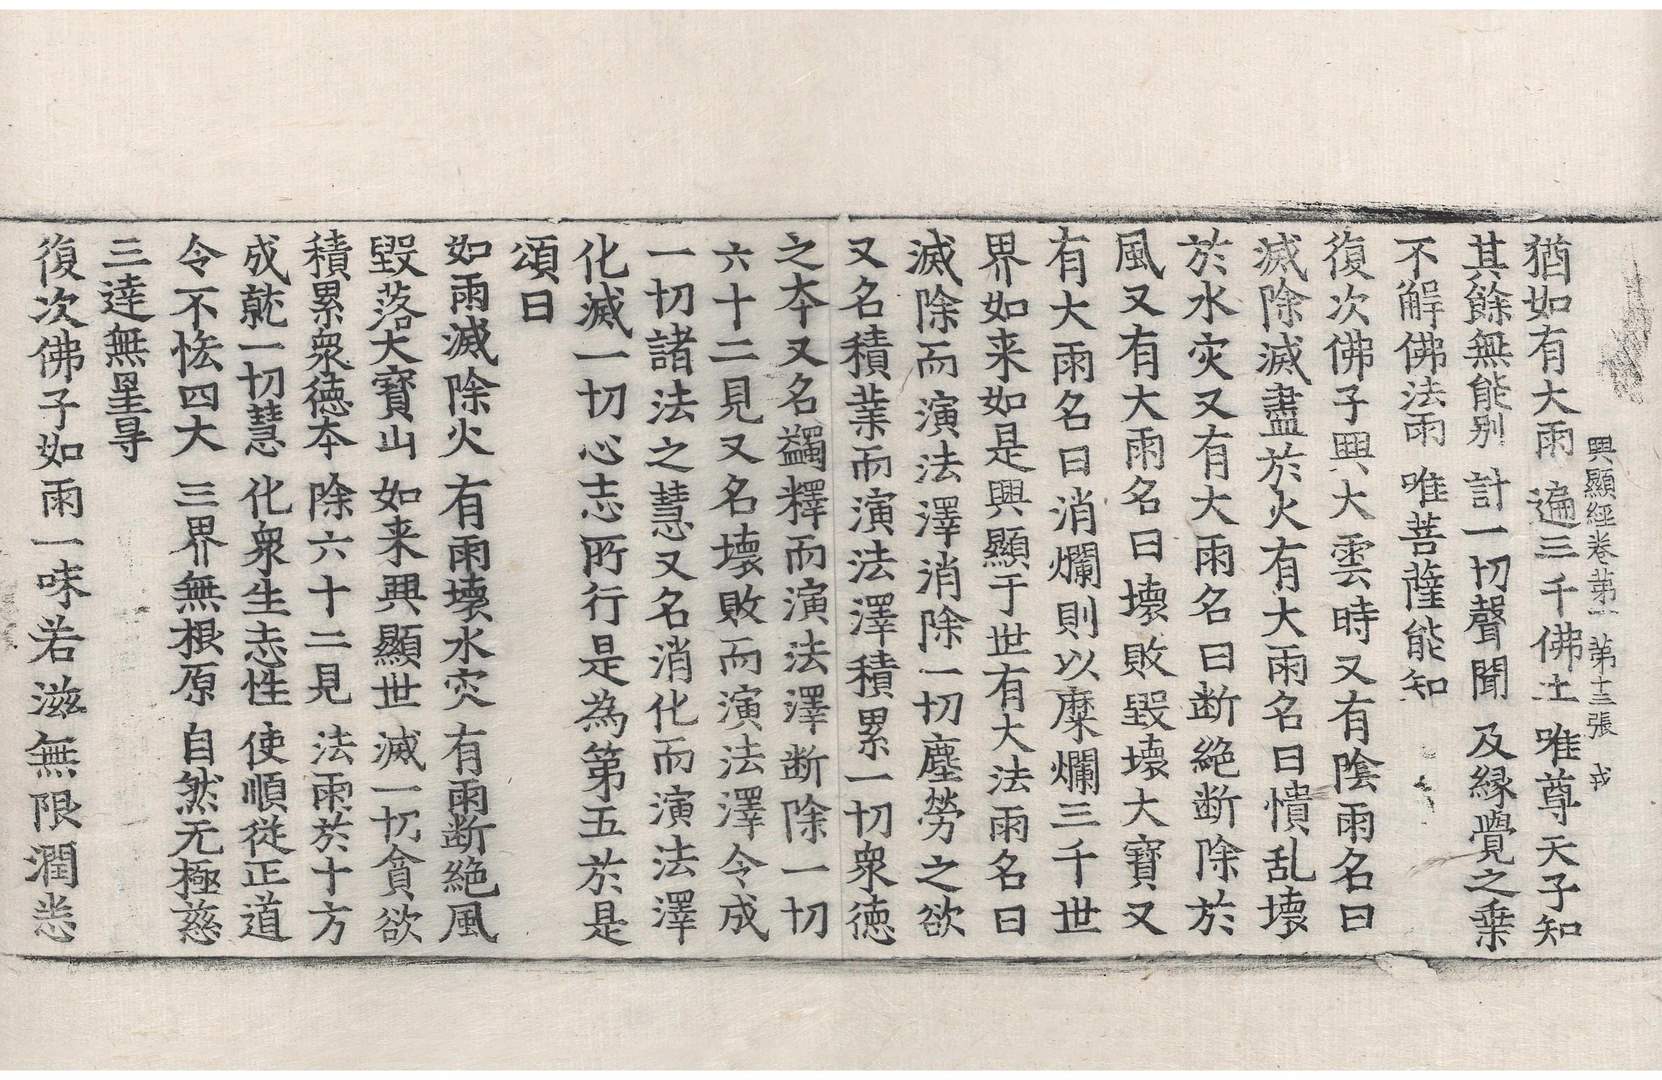 興顯經卷第一 第十三張 戎
猶如有大雨 遍三千佛土 唯尊天子知
其餘無能别 計一切聲聞 及縁覺之乗
不解佛法雨 唯菩薩能知
復次佛子興大雲時又有陰雨名曰
滅除滅盡於火有大雨名曰憒乱壊
於水灾又有大雨名曰断絶断除於
風又有大雨名曰壊敗毀壊大寶又
有大雨名曰消爛則以糜爛三千世
界如来如是興顯于世有大法雨名曰
滅除而演法澤消除一切塵勞之欲
又名積業而演法澤積累一切衆徳
之夲又名蠲釋而演法澤断除一切
六十二見又名壊敗而演法澤令成
一切諸法之慧又名消化而演法澤
化滅一切心志所行是為第五於是
頌曰
如雨滅除火 有雨壊水灾 有雨断絶風
毀落大寶山 如来興顯世 滅一切貪欲
積累衆徳夲 除六十二見 法雨於十方
成就一切慧 化衆生志性 使順從正道
令不恡四大 三界無根原 自然无極慈
三達無罣㝵
復次佛子如雨一味若滋無限潤悉